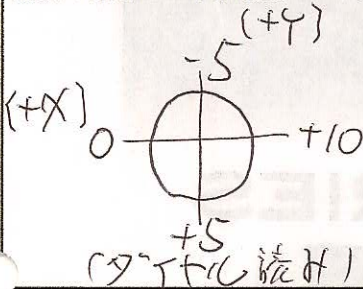 (+Y)
-5
(+X)
0 +10
+5
(ダイヤル読み)